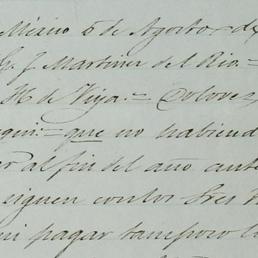 Mexico 5 de Agosto de
G. J. Martinez del Rio. =
H. de Viya. = Dolores
que no habiend
al fin del año ante
siguen con los Sres
ni pagar tampoco l